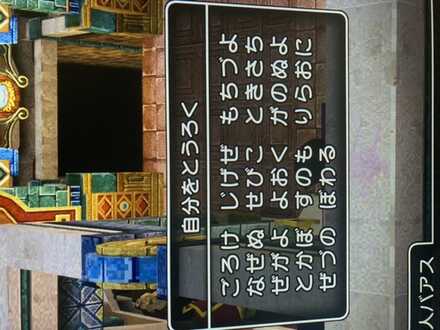 自分をとうろく
ころけ じげぜ もちづよ
なぜぬ せびこ ときさち
ぜがよ よおく がのぬよ
とかぼ すのも りらおに
ぜづの ぼわる